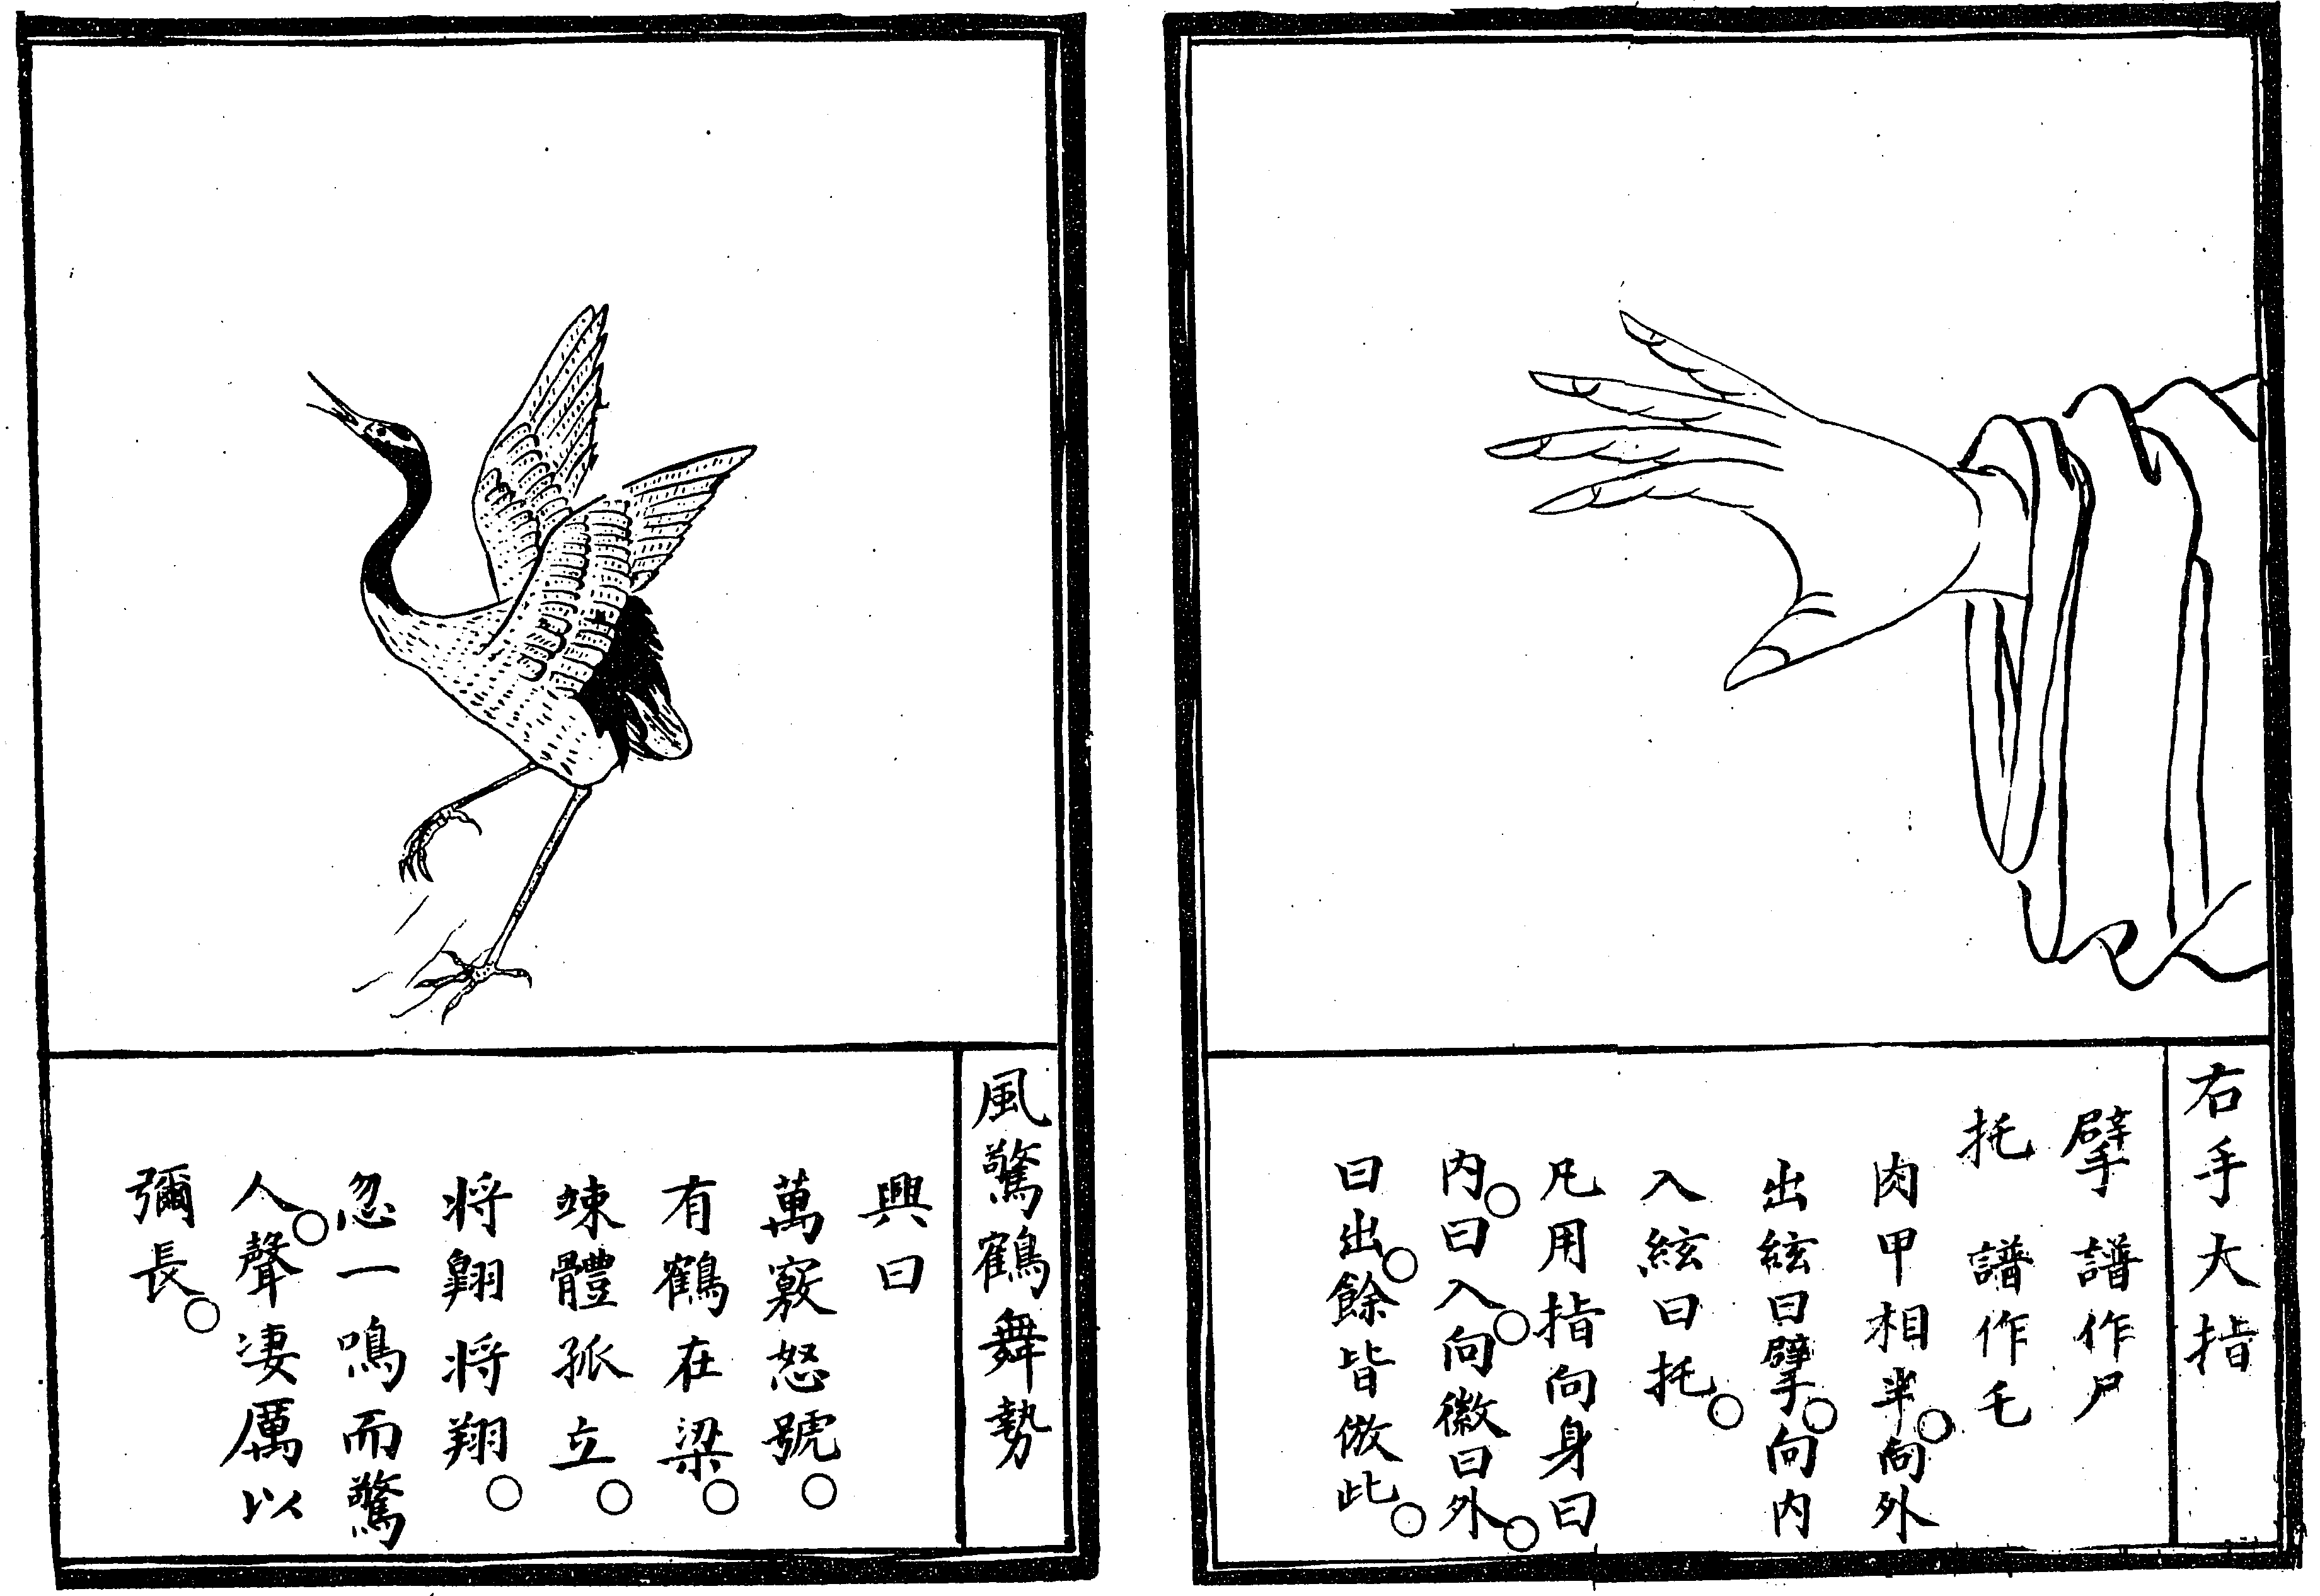 右手大指
擘 譜作尸
托 譜作乇
肉甲相半。向外
出絃曰擘。向内
入絃曰托。
凡用指向身曰
内。曰入。向徽曰外。
曰出。餘皆倣此。
風驚鶴舞勢
興曰
萬竅怒號。
有鶴在梁。
竦體孤立。
将翺将翔。
忽一鳴而驚
人。聲凄厲以
彌長。